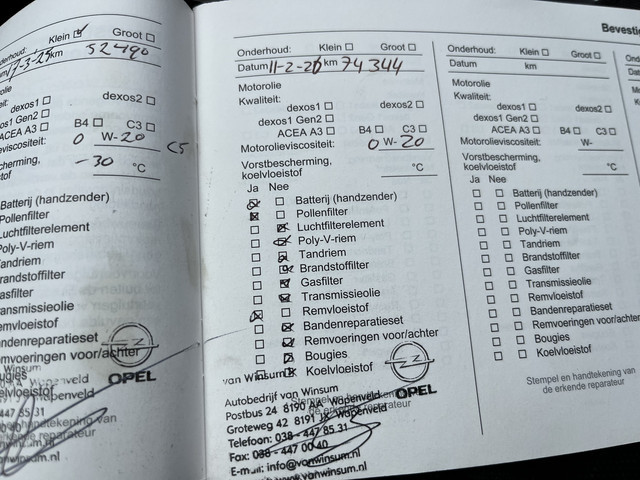 Onderhoud: Klein Groot
17-3-25 km 52490
dexos1 dexos2
os1 Gen2
ACEA A3 B4 C3
viscositeit: 0 W-20 C5
cherming, -30 °C
Batterij (handzender)
Pollenfilter
Luchtfilterelement
Poly-V-riem
Tandriem
Brandstoffilter
Gasfilter
ansmissieolie
emvloeistof
andenreparatieset
emvoeringen voor/achter
OPEL
447 85 31
vanwinsum.nl
Onderhoud: Klein Groot
Datum 11-2-26 km 74344
Motorolie
Kwaliteit:
dexos1 dexos2
dexos1 Gen2
ACEA A3 B4 C3
Motorolieviscositeit: 0 W-20
Vorstbescherming,
koelvloeistof °C
Ja Nee
Batterij (handzender)
Pollenfilter
Luchtfilterelement
Poly-V-riem
Tandriem
Brandstoffilter
Gasfilter
Transmissieolie
Remvloeistof
Bandenreparatieset
Remvoeringen voor/achter
Bougies
Koelvloeistof
van Winsum
OPEL
Autobedrijf van Winsum
Postbus 24 8190 AA Wapenveld
Groteweg 42 8191 JX Wapenveld
Telefoon: 038 - 447 85 31
Fax: 038 - 447 00 40
E-mail: info@vanwinsum.nl
Bevesti
Onderhoud: Klein Groot
Datum km
Motorolie
Kwaliteit:
dexos1 dexos2
dexos1 Gen2
ACEA A3 B4 C3
Motorolieviscositeit: W-
Vorstbescherming,
koelvloeistof °C
Ja Nee
Batterij (handzender)
Pollenfilter
Luchtfilterelement
Poly-V-riem
Tandriem
Brandstoffilter
Gasfilter
Transmissieolie
Remvloeistof
Bandenreparatieset
Remvoeringen voor/achter
Bougies
Koelvloeistof
Stempel en handtekening van
de erkende reparateur